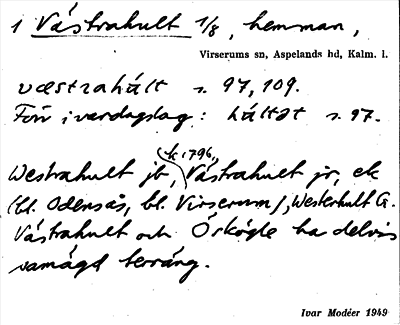 1 Västrahult 1/8, hemman,
Virserums sn, Aspelands hd, Kalm. l.
væstrahált s. 97, 109.
i vardagslag: háltət s. 97.
(k 1796,
Westrahult jb, Västrahult jr, ek
(bl. Odensås, bl. Virserum), Westerhult G.
Västrahult och Örkögle ha delvis
vamägd terräng.
Ivar Modéer 1949